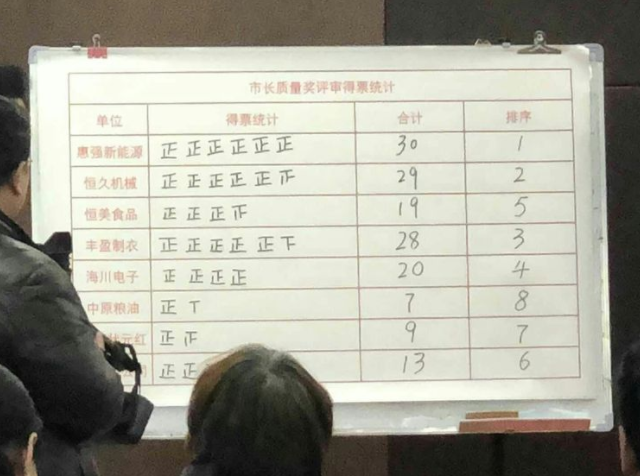 市长质量奖评审得票统计
单位 得票统计 合计 排序
惠强新能源 正 正 正 正 正 正 30 1
恒久机械 正 正 正 正 正 正 29 2
恒美食品 正 正 正 正 19 5
丰盈制衣 正 正 正 正 正 下 28 3
海川电子 正 正 正 正 20 4
中原粮油 正 丅 7 8
元红 正 正 9 7
正 正 13 6